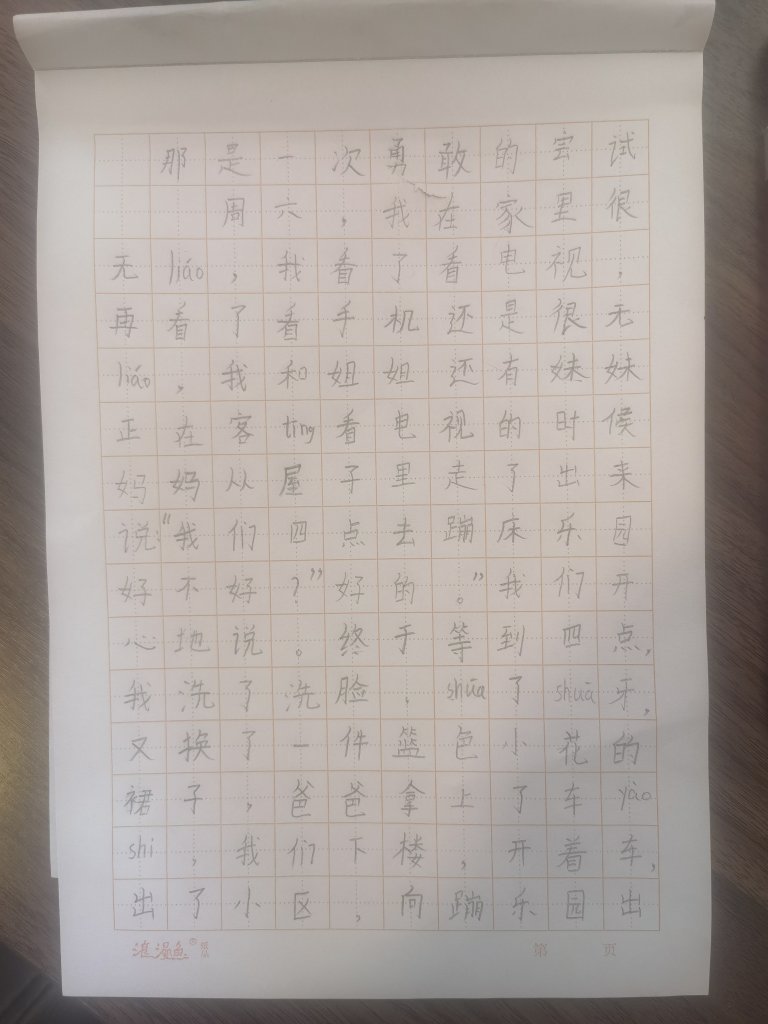 那是一次勇敢的尝试
周六，我在家里很
无liáo，我看了看电视，
再看了看手机还是很无
liáo，我和姐姐还有妹妹
正在客tīng看电视的时候
妈妈从屋子里走了出来
说：“我们四点去蹦床乐园
好不好？”好的。”我们开
心地说。终于等到四点，
我洗了洗脸，shuā了shuā牙，
又换了一件篮色小花的
裙子，爸爸拿上了车yào
shi，我们下楼，开着车，
出了小区，向蹦乐园出
浪漫鱼®纸品
第 页